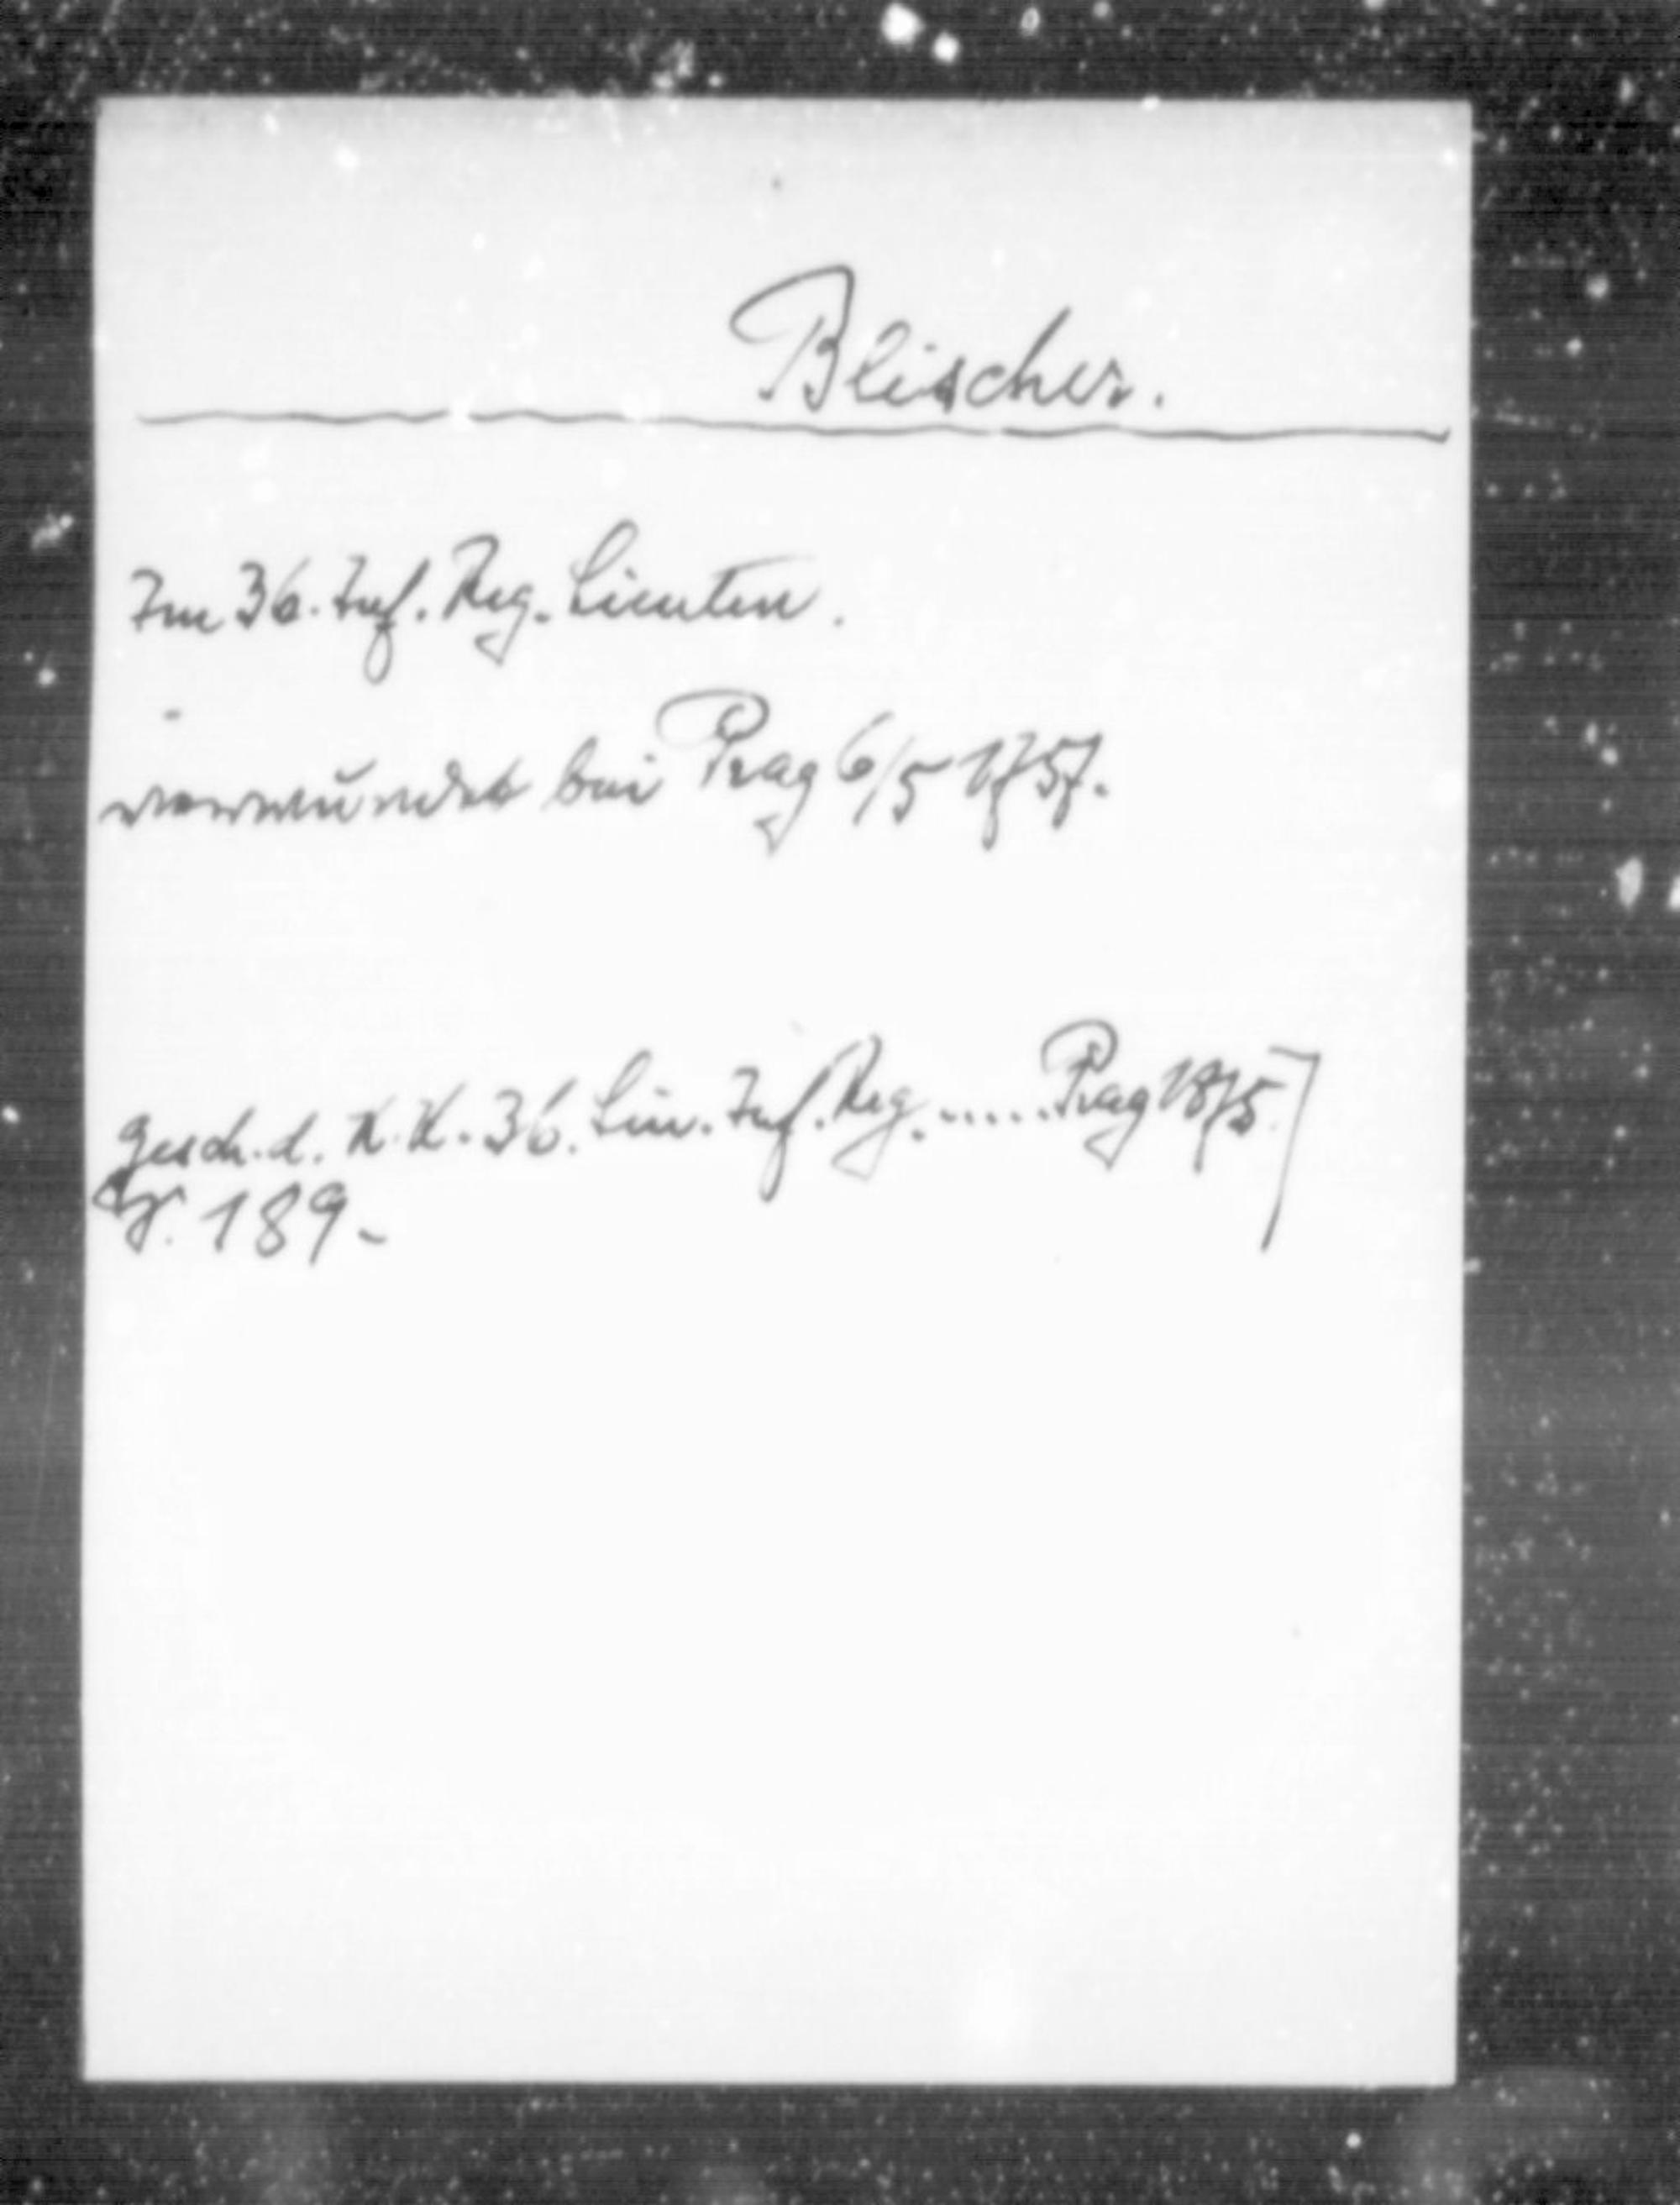 Blischer.
Im 36. Inf. Reg. Lieuten.
verwundet bei Prag 6/5 1757.
Gesch. d. K. K. 36. Lin. Inf. Reg. ..... Prag 1875
S. 189.